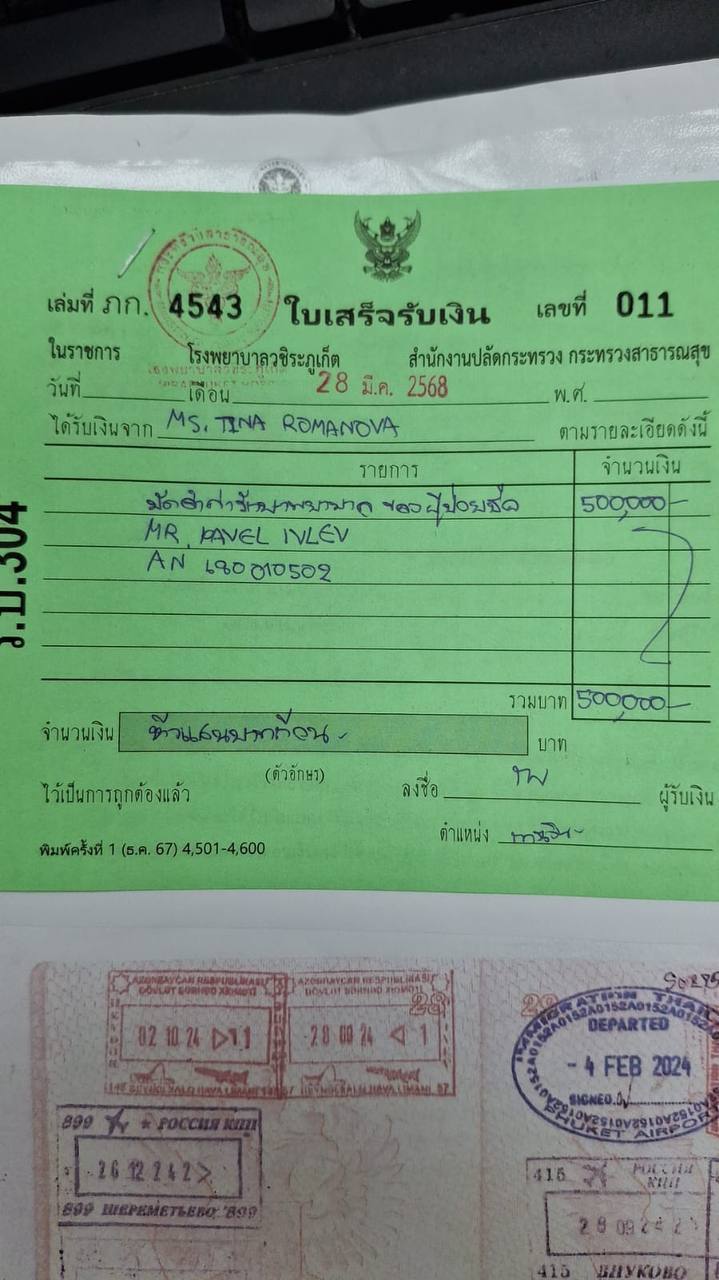 เล่มที่ ภก. 4543 ใบเสร็จรับเงิน เลขที่ 011
ในราชการ โรงพยาบาลวชิระภูเก็ต สำนักงานปลัดกระทรวง กระทรวงสาธารณสุข
วันที่ เดือน 28 มี.ค. 2568 พ.ศ.
ได้รับเงินจาก MS. TINA ROMANOVA ตามรายละเอียดดังนี้
รายการ จำนวนเงิน
มัดจำค่ารักษาพยาบาล ของผู้ป่วยชื่อ 500,000-
MR. PAVEL IVLEV
AN 680010502
รวมบาท 500,000-
จำนวนเงิน ห้าแสนบาทถ้วน- บาท
(ตัวอักษร)
ไว้เป็นการถูกต้องแล้ว ลงชื่อ ผู้รับเงิน
ตำแหน่ง
พิมพ์ครั้งที่ 1 (ธ.ค. 67) 4,501-4,600
ร.บ.304
AZƏRBAYCAN RESPUBLİKASI AZƏRBAYCAN RESPUBLİKASI
DÖVLƏT SƏRHƏD XİDMƏTİ DÖVLƏT SƏRHƏD XİDMƏTİ
02 10 24 11 28 09 24 1
IMMIGRATION THAI
DEPARTED
- 4 FEB 2024
SIGNED
PHUKET AIRPORT
899 РОССИЯ КПП
26 12 24 2
899 ШЕРЕМЕТЬЕВО 899
415 РОССИЯ
КПП
28 09 24 2
415 ВНУКОВО